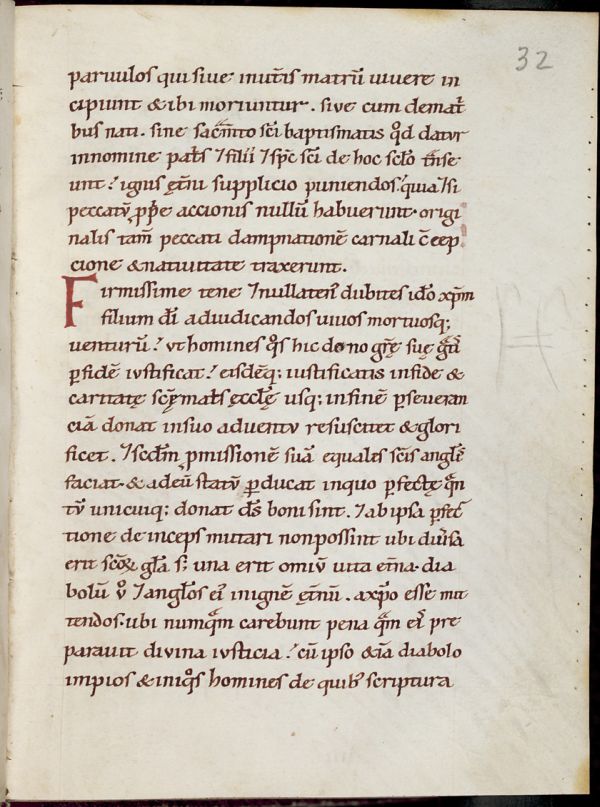 32
paruulos qui siue inut̄is matrū uiuere in
cipiunt & ibi moriuntur. siue cum de mat̄
bus nati. sine sac̄m̄to sc̄i baptismatis qᵒd datur
in nomine pat̄s ⁊ filii ⁊ sp̄c sc̄i de hoc sc̄lo t̄nse
unt. ignis ęt̄ni supplicio puniendos. quia ⁊ si
peccatū ꝓp̄e accionis nullū habuerunt. origi
nalis tam̄ peccati dampnationē carnali c̄cep
cione & natiuitate traxerunt.
Firmissime tene ⁊ nullaten᾽ dubites id̄o xp̄m
filium d̄i ad iudicandos uiuos mortuosq;
uenturū. ut homines qᵒs hic dono gr̄ę suę gᵃtī
ꝑ fidē iustificat. eisdēq; iustificatis in fide &
caritatę sc̄ę mat̄s ęccl̄ę usq; in finē ꝑseueran
ciā donat in suo aduentu resuscitet & glori
ficet. ⁊ sc̄dm̄ ꝓmissionē suā equales sc̄is angl̄is
faciat. & ad eū statū ꝑducat in quo ꝑfectę qᵃn
tū unicuiq; donat d̄s boni sint. ⁊ ab ipsa ꝑfec
tione de inceps mutari non possint ubi diu̇sa
erit sc̄oꝝ gl̄a s; una erit omiū uita et̄na. dia
bolū u̇ᵒ ⁊ angl̄os ei᾽ in ignē ęt̄nū. a xp̄o esse mit
tendos. ubi numqᵃm carebunt pena qᵃm ei᾽ pre
parauit diuina iusticia. cū ipso &iā diabolo
impios & iniqᵒs homines de quib᾽ scriptura